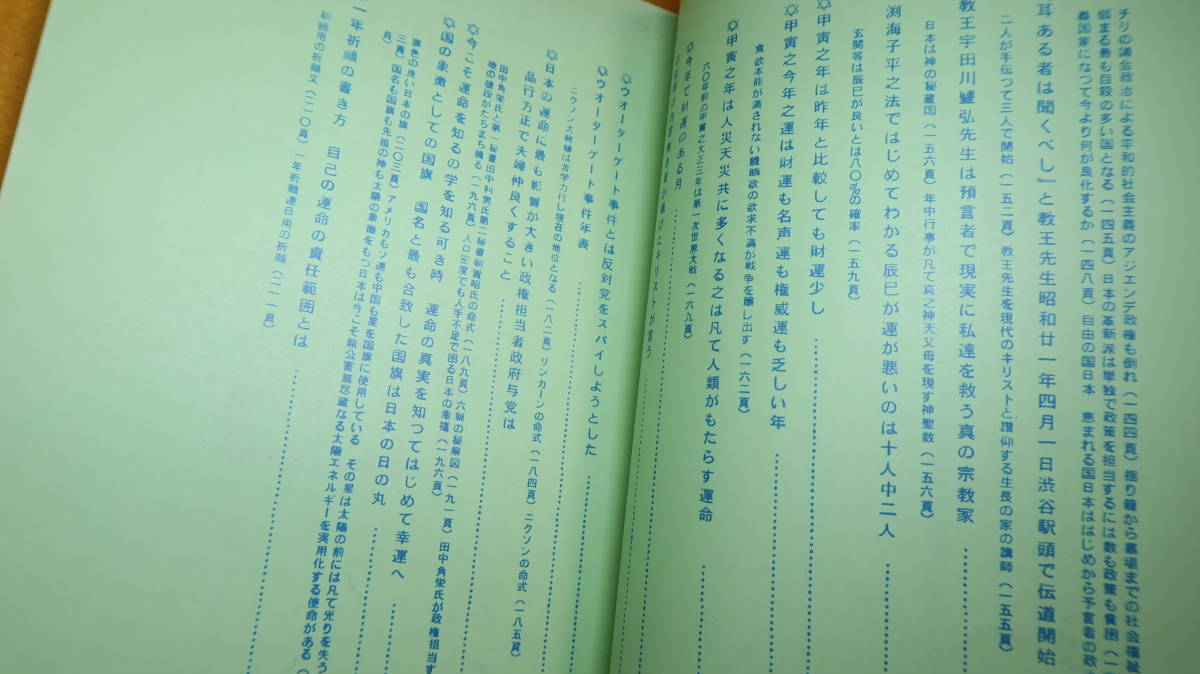 チリの議会政治による平和的社会主義のアジエンデ政権も倒れ(一四四頁) 揺り籠から墓場までの社会福祉
弱まる善も自殺の多い国となる(一四五頁) 日本の革新派は単独で政策を担当するには数も政策も貧困(一
義国家になつて今より何が良化するか(一四八頁) 自由の国日本 恵まれる国日本ははじめから予言者の政
耳ある者は聞くべし』と教王先生昭和廿一年四月一日渋谷駅頭で伝道開始
二人が手伝つて三人で開始(一五二頁) 教王先生を現代のキリストと讃仰する生長の家の講師(一五五頁)
教王宇田川豐弘先生は預言者で現実に私達を救う真の宗教家
日本は神の秘蔵国(一五六頁) 年中行事が凡て真之神天父母を現す神聖数(一五六頁)
渕海子平之法ではじめてわかる辰巳が運が悪いのは十人中二人
玄関等は辰巳が良いとは八〇%の確率(一五九頁)
✡甲寅之年は昨年と比較しても財運少し
✡甲寅之今年之運は財運も名声運も権威運も乏しい年
食欲本能が満されない饑餓欲の欲求不満が戦争を醸し出す(一六二頁)
✡甲寅之年は人災天災共に多くなる之は凡て人類がもたらす運命
六〇年前の甲寅之大正三年は第一次世界大戦(一六九頁)
✡今年で財運のある月
キリストが言う
✡ウオーターゲート事件とは反対党をスパイしようとした
✡ウオーターゲート事件年表
ニクソン大統領は苦学力行し現在の地位となる(一八二頁) リンカーンの命式(一八四頁) ニクソンの命式(一八五頁)
✡日本の運命に最も影響が大きい政権担当者政府与党は
品行方正で夫婦仲良くすること
田中角栄氏と第一秘書田中利男氏第二秘書朝賀昭氏の命式(一八九頁) 六親の秘解図(一九一頁) 田中角栄氏が政権担当す
地の値段がたちまち騰る(一九六頁) 人口密度でも人手不足で困る日本の幸福(一九六頁)
✡今こそ運命を知るの学を知る可き時 運命の真実を知つてはじめて幸運へ
✡国の象徴としての国旗 国名と最も合致した国旗は日本の日の丸
旗色の良い日本の旗(二〇三頁) アメリカもソ連も中国も星を国旗に使用している その星は太陽の前には凡て光りを失ろ
三頁) 国名も国旗も先祖の神も太陽の象徴をもつ日本は今こそ無公害無尽蔵なる太陽エネルギーを実用化する使命がある(
頁)
一年祈願の書き方 自己の運命の責任範囲とは
祈願用の祈願文(二一〇頁) 一年祈願連日用の祈願(二一一頁)